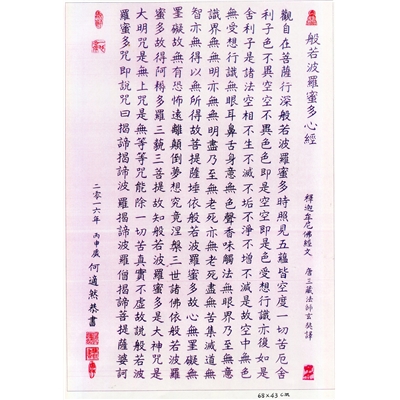 般若波羅蜜多心經
釋迦牟尼佛經文
唐三藏法師玄奘譯
觀自在菩薩行深般若波羅蜜多時照見五蘊皆空度一切苦厄舍
利子色不異空空不異色色即是空空即是色受想行識亦復如是
舍利子是諸法空相不生不滅不垢不淨不增不減是故空中無色
無受想行識無眼耳鼻舌身意無色聲香味觸法無眼界乃至無意
識界無無明亦無無明盡乃至無老死亦無老死盡無苦集滅道無
智亦無得以無所得故菩提薩埵依般若波羅蜜多故心無罣礙無
罣礙故無有恐怖遠離顛倒夢想究竟涅槃三世諸佛依般若波羅
蜜多故得阿耨多羅三藐三菩提故知般若波羅蜜多是大神咒是
大明咒是無上咒是無等等咒能除一切苦真實不虛故說般若波
羅蜜多咒即說咒曰揭諦揭諦波羅揭諦波羅僧揭諦菩提薩婆訶
二零一六年 丙申歲 何適然恭書
68×43 cm